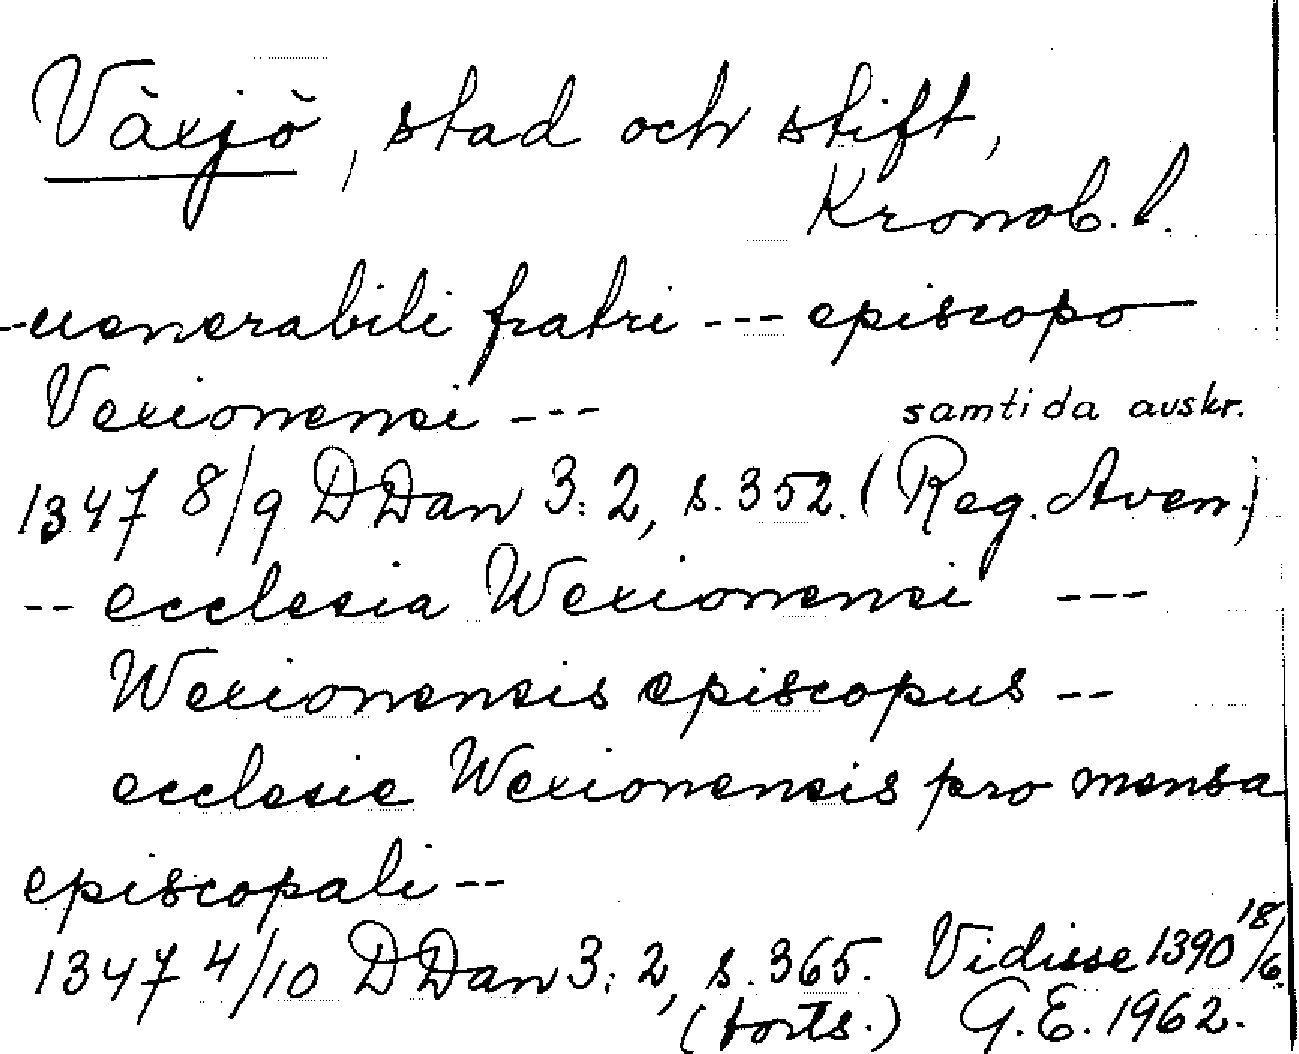 Växjö, stad och stift,
Kronob. l.
-uenerabili fratri --- episcopo
Vexionensi ---
samtida avskr.
1347 8/9 DDan 3:2, s. 352. (Reg. Aven.)
-- ecclesia Wexionensi ---
Wexionensis episcopus --
ecclesie Wexionensis pro mensa
episcopali --
1347 4/10 DDan 3:2, s. 365. Vidisse 1390 18/6.
(forts.) G.E. 1962.